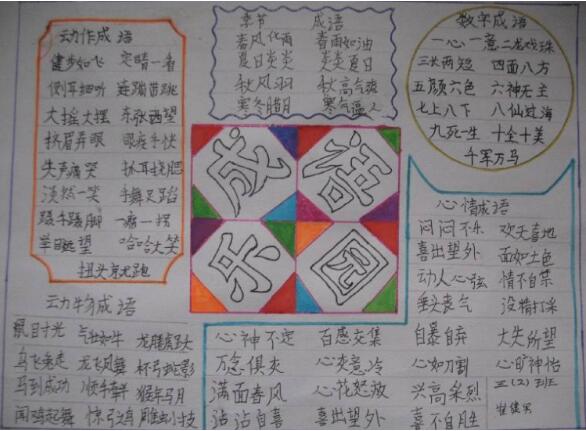 动作成语
健步如飞 定睛一看
侧耳细听 连蹦带跳
大摇大摆 东张西望
挤眉弄眼 眼疾手快
失声痛哭 抓耳挠腮
淡然一笑 手舞足蹈
蹑手蹑脚 一瘸一拐
举目远望 哈哈大笑
扭头就跑
季节 成语
春风化雨 春雨如油
夏日炎炎 炎炎夏日
秋风 秋高气爽
寒冬腊月 寒气逼人
数字成语
一心一意 二龙戏珠
三长两短 四面八方
五颜六色 六神无主
七上八下 八仙过海
九死一生 十全十美
千军万马
成语
乐园
动物成语
鼠目寸光 气壮如牛 龙腾虎跃
乌飞兔走 龙飞凤舞 杯弓蛇影
马到成功 顺手牵羊 猴年马月
闻鸡起舞 惊弓之鸟 雕虫小技
心情成语
闷闷不乐 欢天喜地
喜出望外 面如土色
动人心弦 情不自禁
垂头丧气 没精打采
心神不定 百感交集 自暴自弃 大失所望
万念俱灰 心灰意冷 心如刀割 心旷神怡
满面春风 心花怒放 兴高采烈
沾沾自喜 喜出望外 喜不自胜
三(2)班